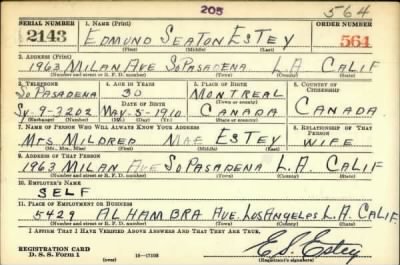 205
564
SERIAL NUMBER 1. NAME (Print) ORDER NUMBER
2143 EDMUND SEATON ESTEY 564
(First) (Middle) (Last)
2. ADDRESS (Print)
1963 MILAN AVE SO PASADENA L.A. CALIF
(Number and street or R. F. D. number) (Town) (County) (State)
3. TELEPHONE 4. AGE IN YEARS 5. PLACE OF BIRTH 6. COUNTRY OF CITIZENSHIP
SO PASADENA 30 MONTREAL
DATE OF BIRTH (Town or county) CANADA
SY. 9-3202 MAY-5-1910 CANADA
(Exchange) (Number) (Mo.) (Day) (Yr.) (State or country)
7. NAME OF PERSON WHO WILL ALWAYS KNOW YOUR ADDRESS 8. RELATIONSHIP OF THAT PERSON
MRS MILDRED MAE ESTEY WIFE
(Mr., Mrs., Miss) (First) (Middle) (Last)
9. ADDRESS OF THAT PERSON
1963 MILAN AVE SO PASADENA L.A. CALIF
(Number and street or R. F. D. number) (Town) (County) (State)
10. EMPLOYER'S NAME
SELF
11. PLACE OF EMPLOYMENT OR BUSINESS
5429 ALHAMBRA AVE. LOS ANGELES L.A. CALIF
(Number and street or R. F. D. number) (Town) (County) (State)
I AFFIRM THAT I HAVE VERIFIED ABOVE ANSWERS AND THAT THEY ARE TRUE.
REGISTRATION CARD
D. S. S. Form 1 16—17105 E.S. Estey
(Registrant's signature)